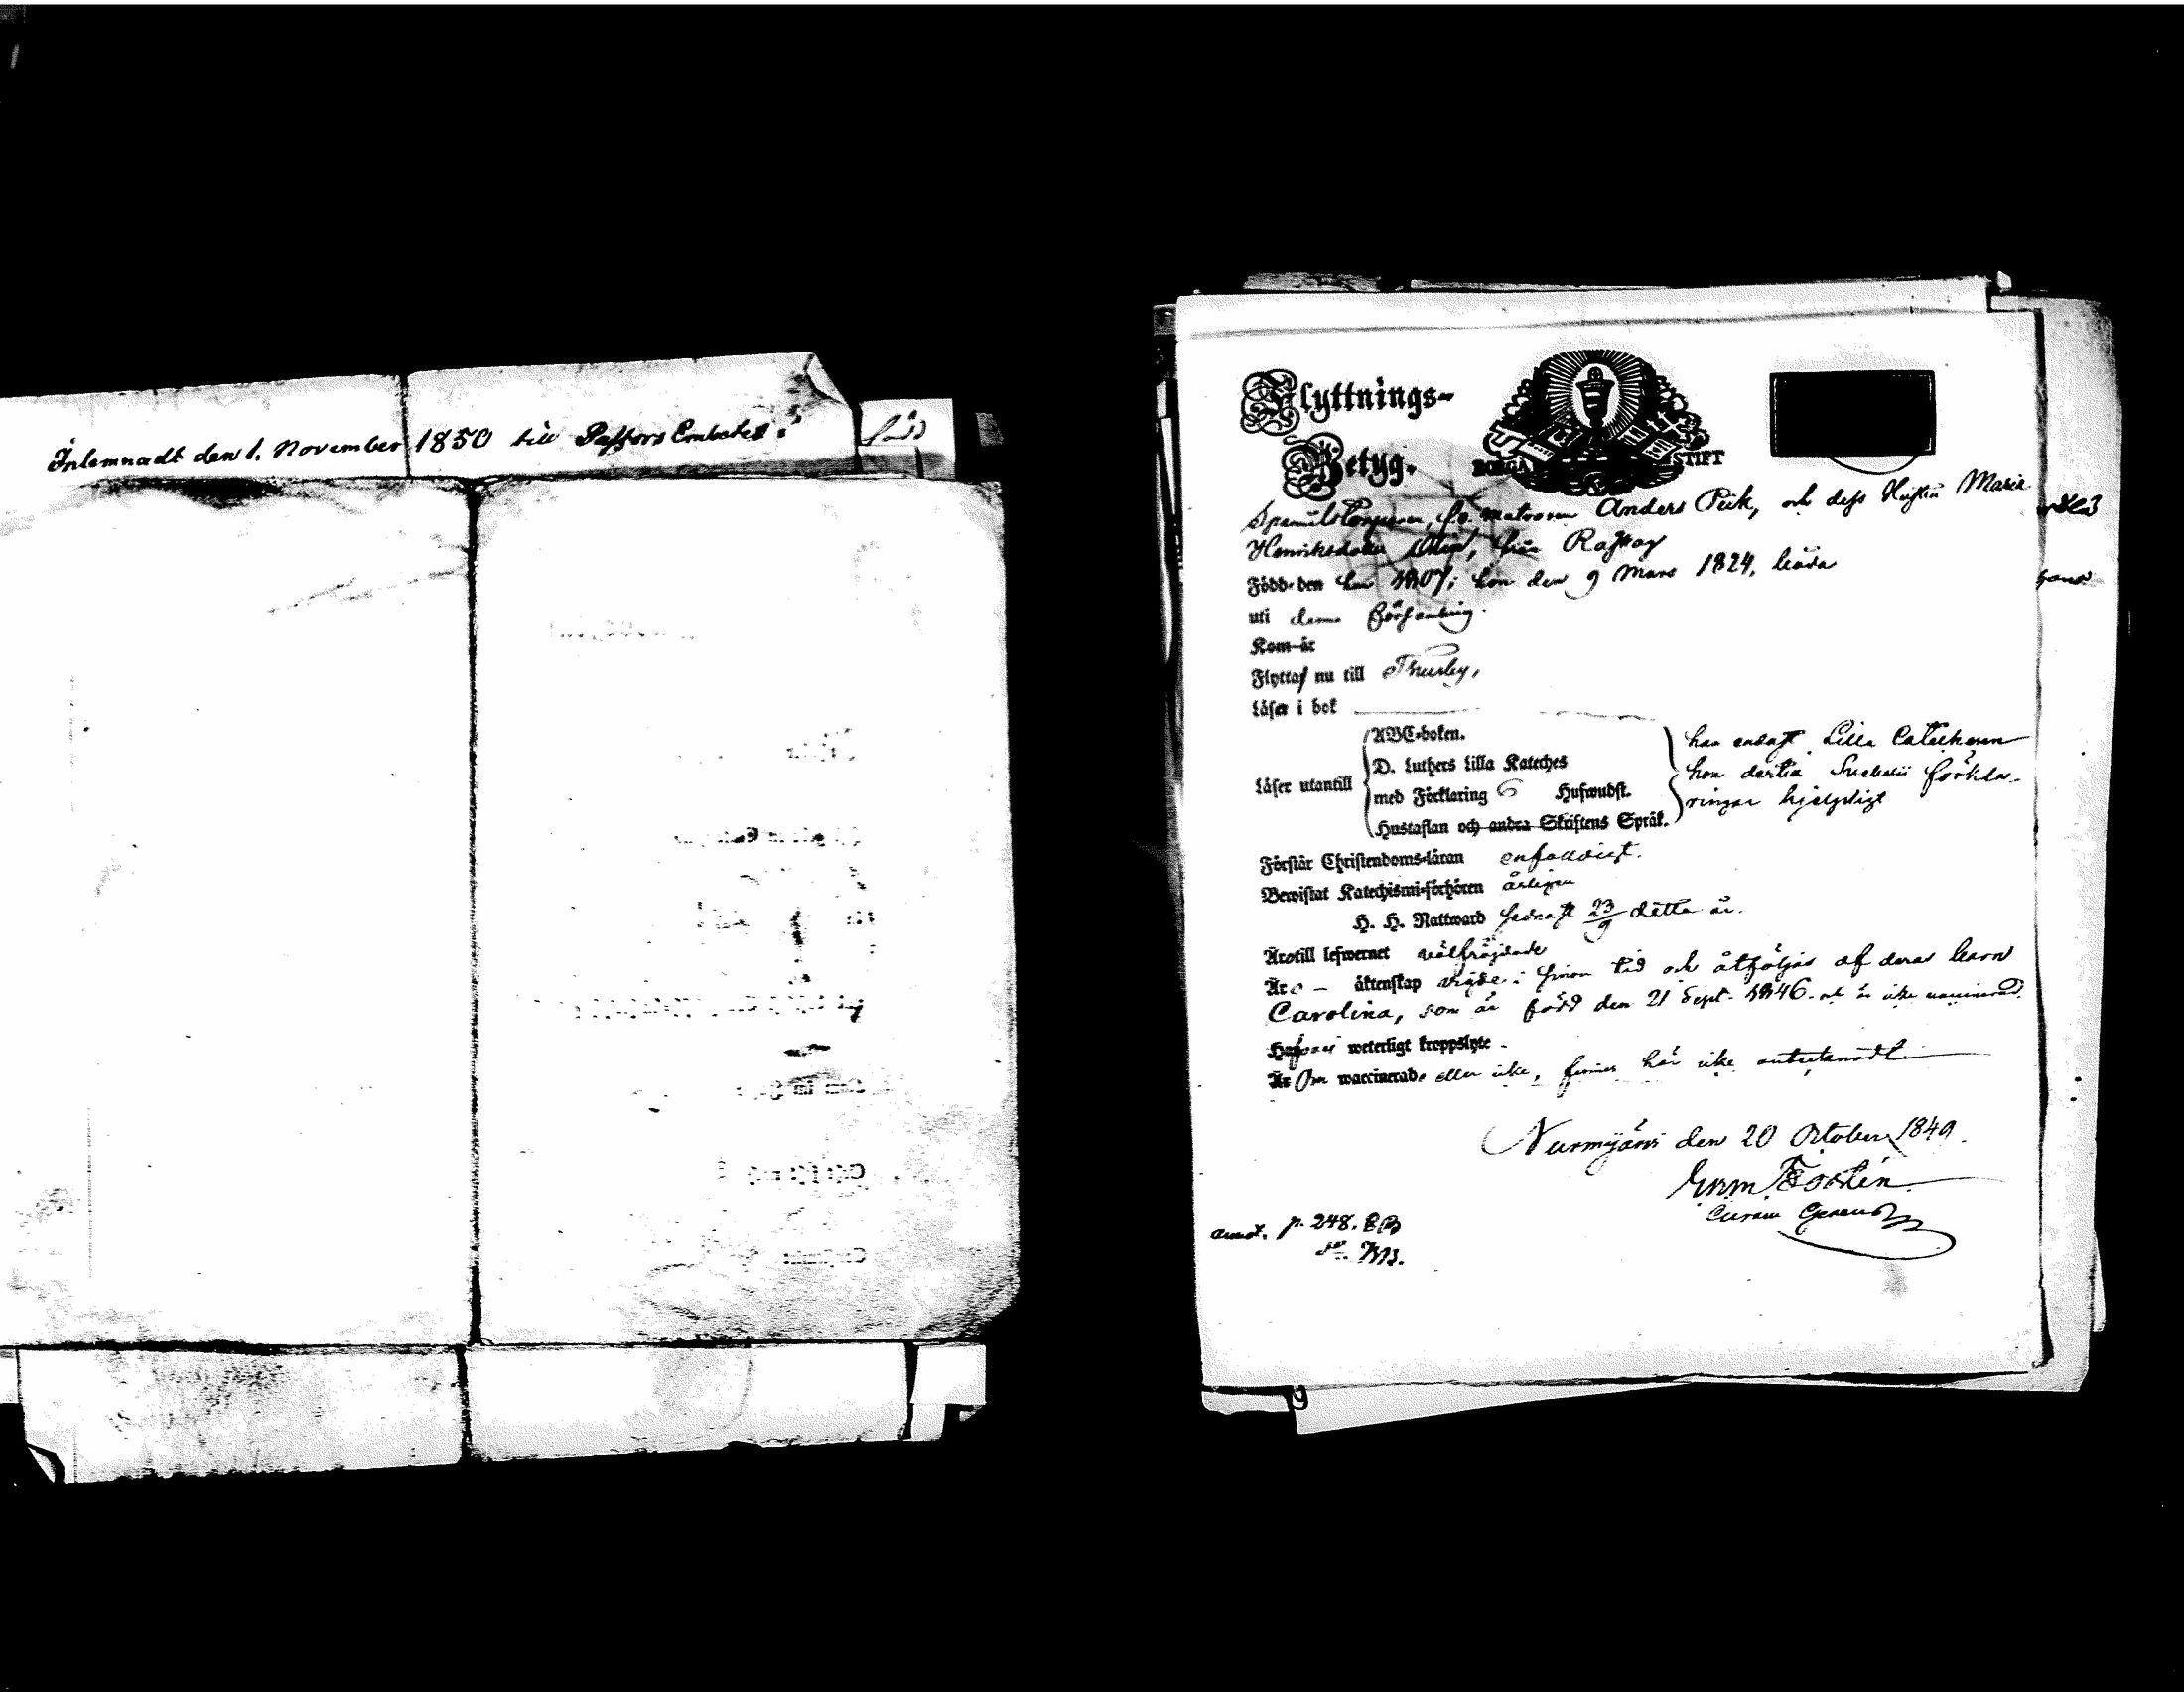 Inlemnadt den 1. November 1850 till Pastors Embetet
Flyttnings-
Betyg.
BORGÅ STIFT
Anders Piik, och dess Hustru Maria
Henriksdotter från
Född den han 1807; hon den 9 Mars 1824, båda
uti denna Församling.
Kom-är
Flyttas nu till Thusby,
Läser i bok
Läser utantill
ABC-boken.
D. Luthers Lilla Kateches
med Förklaring 6 Hufwudst.
Hustaflan och andra Skriftens Språk.
han endast Lilla Catechesen
hon dertill Svebelii förkla-
ringar hjelpligt
Förstår Christendoms-läran enfaldigt.
Bewistat Katechismi-förhören årligen
H. H. Nattward senast 23/9 detta år.
Äro till lefwernet wälfrägdade
Äro äktenskap wigde i sinom tid och åtföljas af deras barn
Carolina, som är född den 21 Sept. 1846. och är icke vaccinerad.
Hafwa weterligt kroppslyte
Är waccinerade eller icke, finnes här icke anteknadt
Nurmijärvi den 20 October 1849.
p. 248.